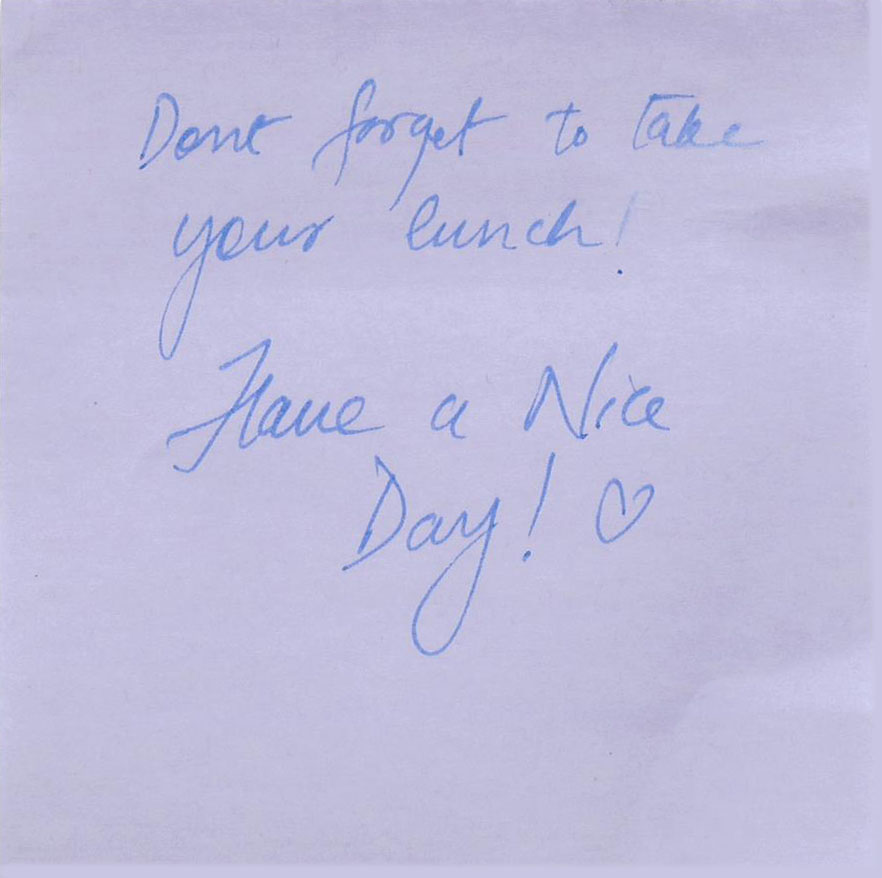 Dont forget to take
your lunch!
Have a Nice
Day! ♡